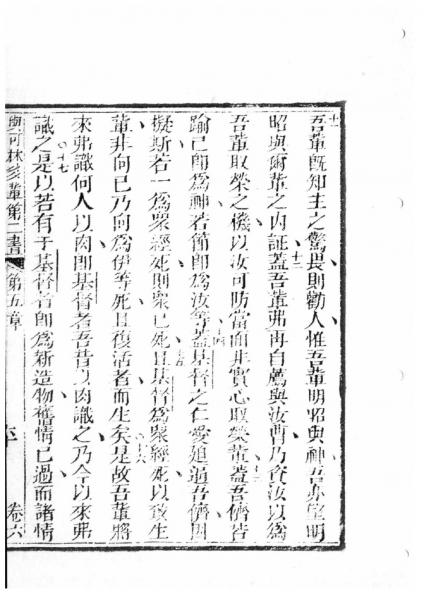 十一
吾輩既知主之驚畏則勸人惟吾輩明昭與神吾亦望明
昭與爾輩之內証蓋吾輩弗再自薦與汝曹乃資汝以為
十二
吾輩取榮之機以汝可防當面非實心取榮輩蓋吾儕皆
十三
踰己即為神若節即為汝等蓋基督之仁愛迫逼吾儕因
十四
擬斯若一為眾經死則眾已死且基督為眾經死以致生
十五
輩非向己乃向為伊等死且復活者而生矣是故吾輩將
十六
來弗識何人以肉即基督者吾昔以肉識之乃今以來弗
識之是以若有于基督者即為新造物舊情已過而諸情
十七
與可林多輩第二書 第五章 六 卷六